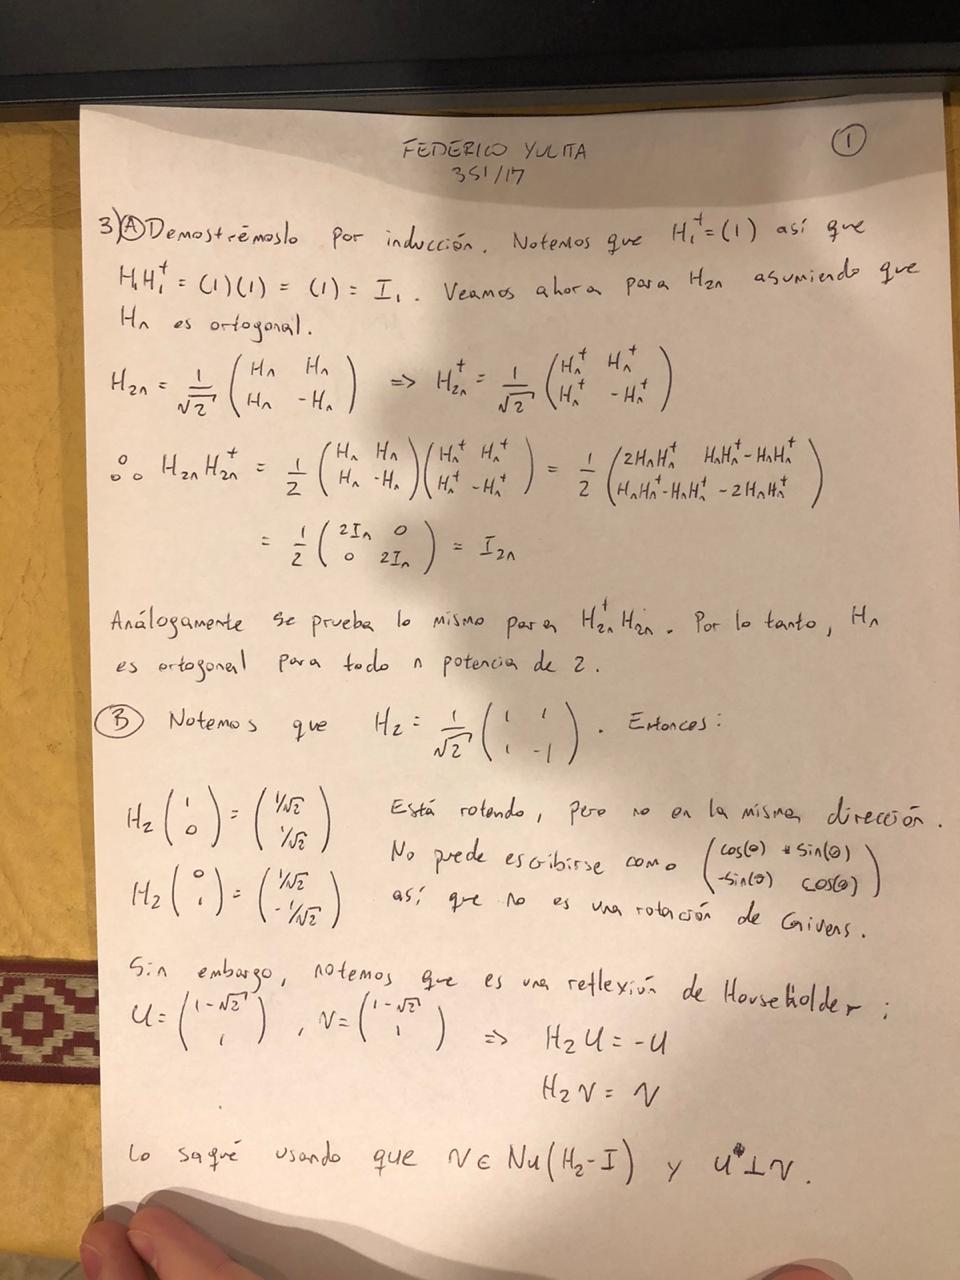 FEDERICO YULITA
351/17
①
3) Ⓐ Demostrémoslo por inducción. Notemos que H₁ᵗ = (1) así que
H₁H₁ᵗ = (1)(1) = (1) = I₁. Veamos ahora para H₂ₙ asumiendo que
Hₙ es ortogonal.
H₂ₙ = 1/√2 (Hₙ Hₙ; Hₙ -Hₙ) => H₂ₙᵗ = 1/√2 (Hₙᵗ Hₙᵗ; Hₙᵗ -Hₙᵗ)
∴ H₂ₙH₂ₙᵗ = 1/2 (Hₙ Hₙ; Hₙ -Hₙ)(Hₙᵗ Hₙᵗ; Hₙᵗ -Hₙᵗ) = 1/2 (2HₙHₙᵗ HₙHₙᵗ-HₙHₙᵗ; HₙHₙᵗ-HₙHₙᵗ -2HₙHₙᵗ)
= 1/2 (2Iₙ 0; 0 2Iₙ) = I₂ₙ
Análogamente se prueba lo mismo para H₂ₙᵗH₂ₙ. Por lo tanto, Hₙ
es ortogonal para todo n potencia de 2.
Ⓑ Notemos que H₂ = 1/√2 (1 1; 1 -1). Entonces:
H₂ (1; 0) = (1/√2; 1/√2)
H₂ (0; 1) = (1/√2; -1/√2)
Está rotando, pero no en la misma dirección.
No puede escribirse como (cos(θ) +sin(θ); -sin(θ) cos(θ))
así que no es una rotación de Givens.
Sin embargo, notemos que es una reflexión de Householder:
U = (1-√2; 1), V = (1-√2; 1) => H₂U = -U
H₂V = V
Lo saqué usando que V ∈ Nu(H₂-I) y U ⊥ V.